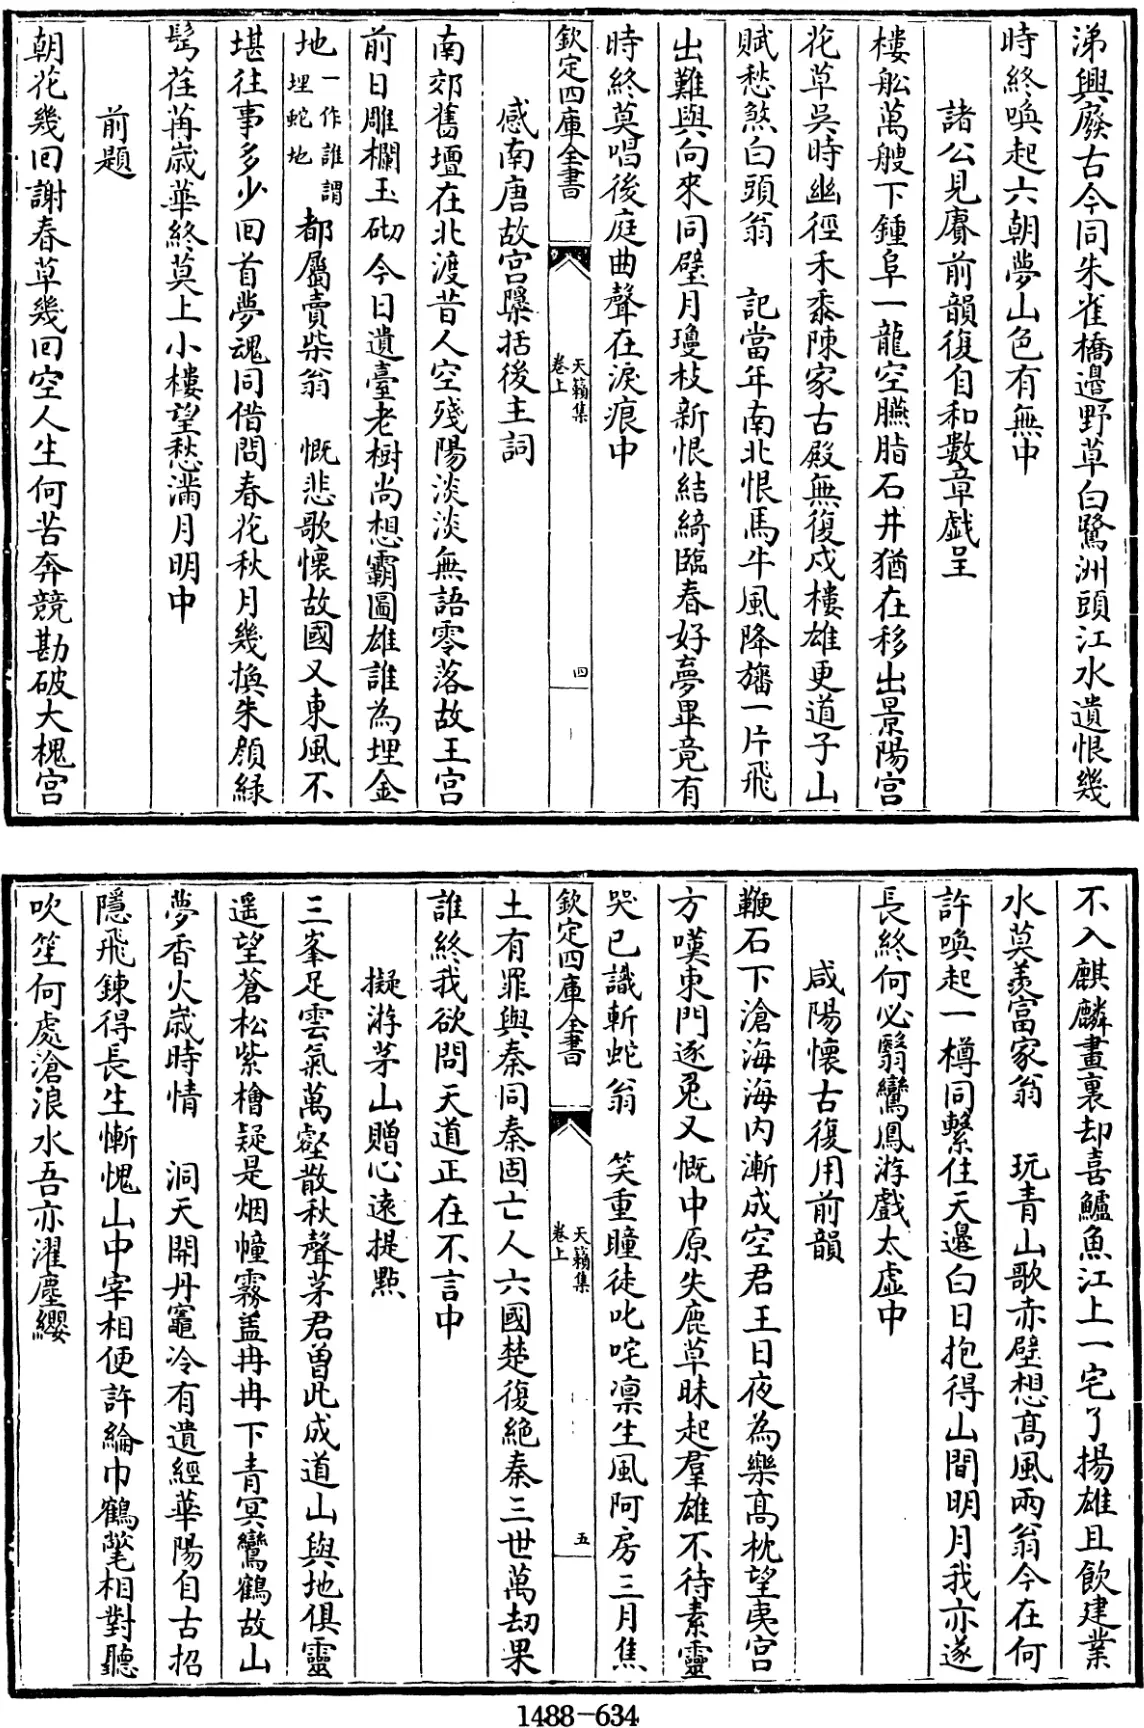 涕興廢古今同朱雀橋邉野草白鷺洲頭江水遺恨幾
時終喚起六朝夢山色有無中
諸公見賡前韻復自和數章戲呈
樓舩萬艘下鍾阜一龍空臙脂石井猶在移出景陽宮
花草吳時幽徑禾黍陳家古殿無復戍樓雄更道子山
賦愁煞白頭翁　記當年南北恨馬牛風降旛一片飛
出難與向來同璧月瓊枝新恨結綺臨春好夢畢竟有
時終莫唱後庭曲聲在淚痕中
欽定四庫全書
天籟集
卷上
四
感南唐故宮檃括後主詞
南郊舊壇在北渡昔人空殘陽淡淡無語零落故王宮
前日雕欄玉砌今日遺臺老樹尚想霸圖雄誰為埋金
地一作誰謂埋蛇地都屬賣柴翁　慨悲歌懐故國又東風不
堪往事多少回首夢魂同借問春花秋月幾換朱顔緑
髩荏苒歳華終莫上小樓望愁滿月明中
前題
朝花幾回謝春草幾回空人生何苦奔競勘破大槐宮
不入麒麟畫裏却喜鱸魚江上一宅了揚雄且飲建業
水莫羡富家翁　玩青山歌赤壁想髙風兩翁今在何
許喚起一樽同繫住天邉白日抱得山間明月我亦遂
長終何必翳鸞鳳游戲太虚中
咸陽懷古復用前韻
鞭石下滄海海内漸成空君王日夜為樂髙枕望夷宫
方嘆東門逐兎又慨中原失鹿草昧起羣雄不待素靈
哭已識斬蛇翁　笑重瞳徒叱咤凛生風阿房三月焦
欽定四庫全書
天籟集
卷上
五
土有罪與秦同秦固亡人六國楚復絶秦三世萬刼果
誰終我欲問天道正在不言中
擬游茅山贈心遠提㸃
三峯足雲氣萬壑散秋聲茅君曽此成道山與地俱靈
遥望蒼松紫檜疑是烟幢霧盖冉冉下青冥鸞鶴故山
夢香火歳時情　洞天開丹竈冷有遺經華陽自古招
隱飛鍊得長生慚愧山中宰相便許綸巾鶴氅相對聽
吹笙何處滄浪水吾亦濯塵纓
1488-634